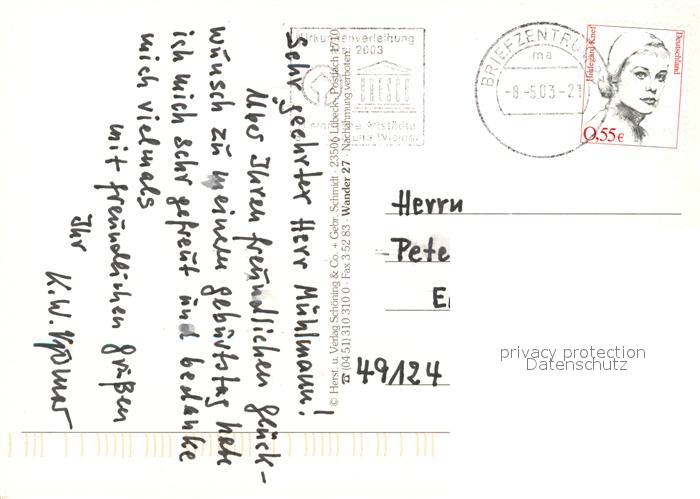 Sehr geehrter Herr Mühlmann!
Über Ihren freundlichen Glück-
wunsch zu meinem Geburtstag habe
ich mich sehr gefreut und bedanke
mich vielmals
mit freundlichen Grüßen
Ihr
K.W.
© Herst. u. Verlag Schöning & Co. + Gebr. Schmidt · 23506 Lübeck · Postfach 1710
☎ (04 51) 310 310 0 · Fax 3 52 83 · Wander 27 · Nachahmung verboten!
Urkundenverleihung
2003
BRIEFZENTRUM
ma
-8-5.03-21
Hildegard Knef
Deutschland
0,55€
Herrn
Pete
49124
privacy protection
Datenschutz